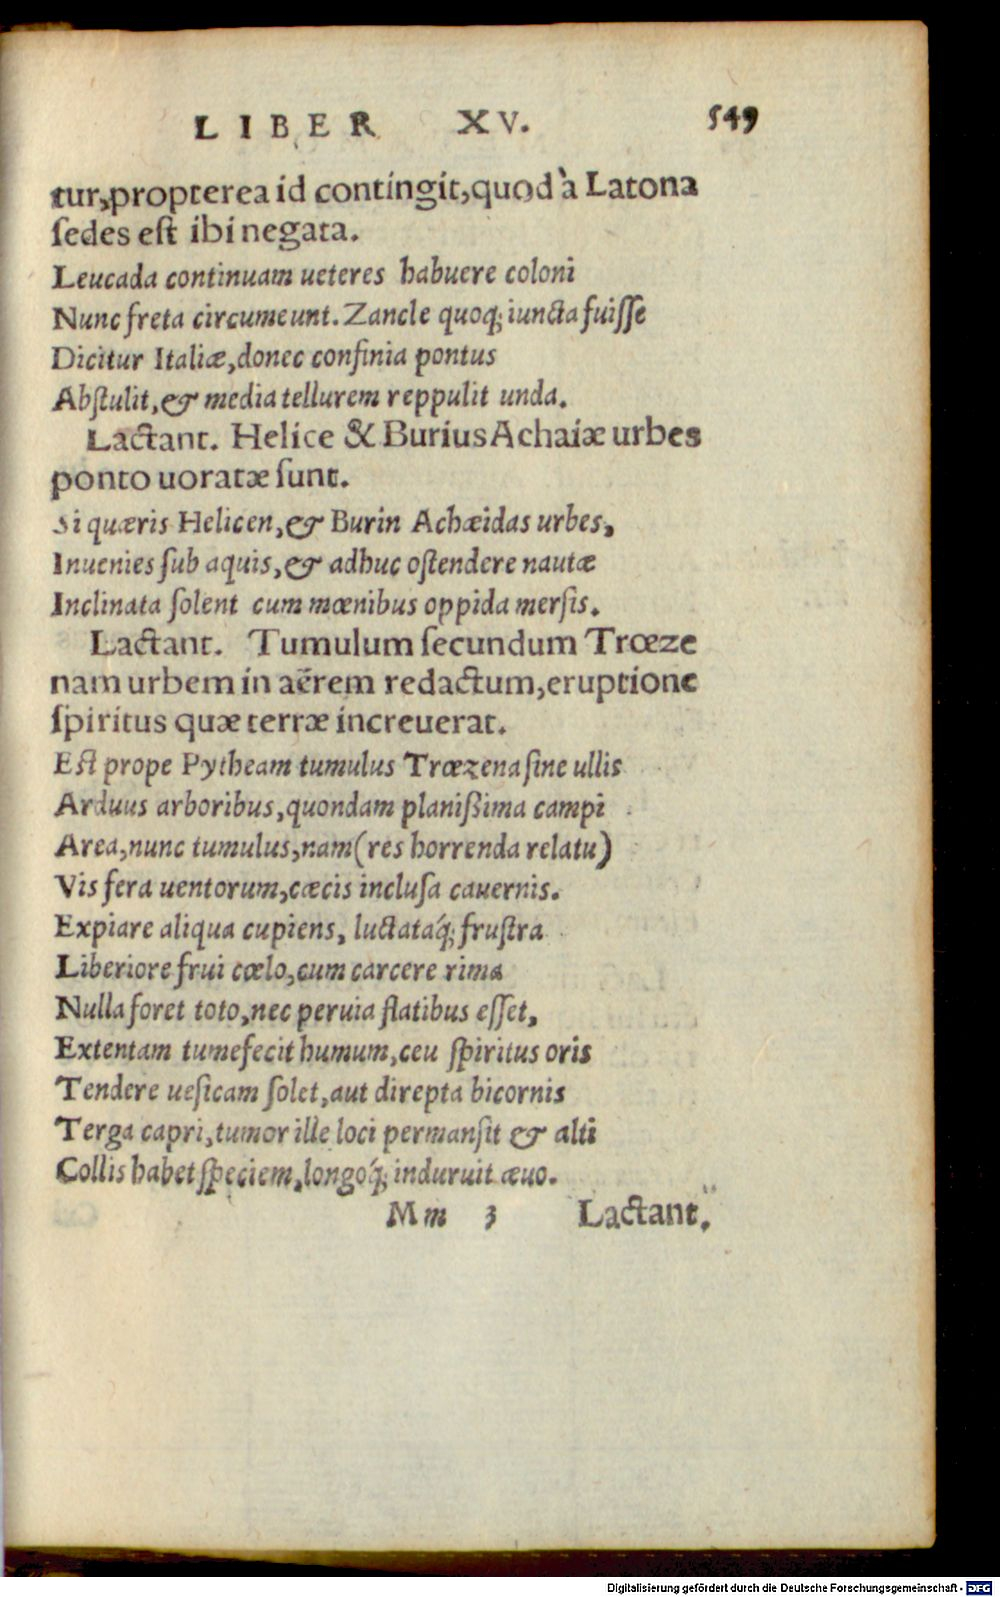 LIBER XV. 549
tur, propterea id contingit, quod à Latona
ſedes eſt ibi negata.
Leucada continuam ueteres habuere coloni
Nunc freta circumeunt. Zancle quoq; iuncta fuiſſe
Dicitur Italiæ, donec confinia pontus
Abſtulit, & media tellurem reppulit unda.
Lactant. Helice & Burius Achaiæ urbes
ponto uoratæ ſunt.
Si quæris Helicen, & Burin Achæidas urbes,
Inuenies ſub aquis, & adhuc oſtendere nautæ
Inclinata ſolent cum mœnibus oppida merſis.
Lactant. Tumulum ſecundum Trœze
nam urbem in aẽrem redactum, eruptione
ſpiritus quæ terræ increuerat.
Eſt prope Pytheam tumulus Trœzena ſine ullis
Arduus arboribus, quondam planißima campi
Area, nunc tumulus, nam (res horrenda relatu)
Vis fera uentorum, cæcis incluſa cauernis.
Expiare aliqua cupiens, luctataq́; fruſtra
Liberiore frui cœlo, cum carcere rima
Nulla foret toto, nec peruia flatibus eſſet,
Extentam tumefecit humum, ceu ſpiritus oris
Tendere ueſicam ſolet, aut direpta bicornis
Terga capri, tumor ille loci permanſit & alti
Collis habet ſpeciem, longoq́; induruit æuo.
Mm 3 Lactant.
Digitalisierung gefördert durch die Deutsche Forschungsgemeinschaft - DFG